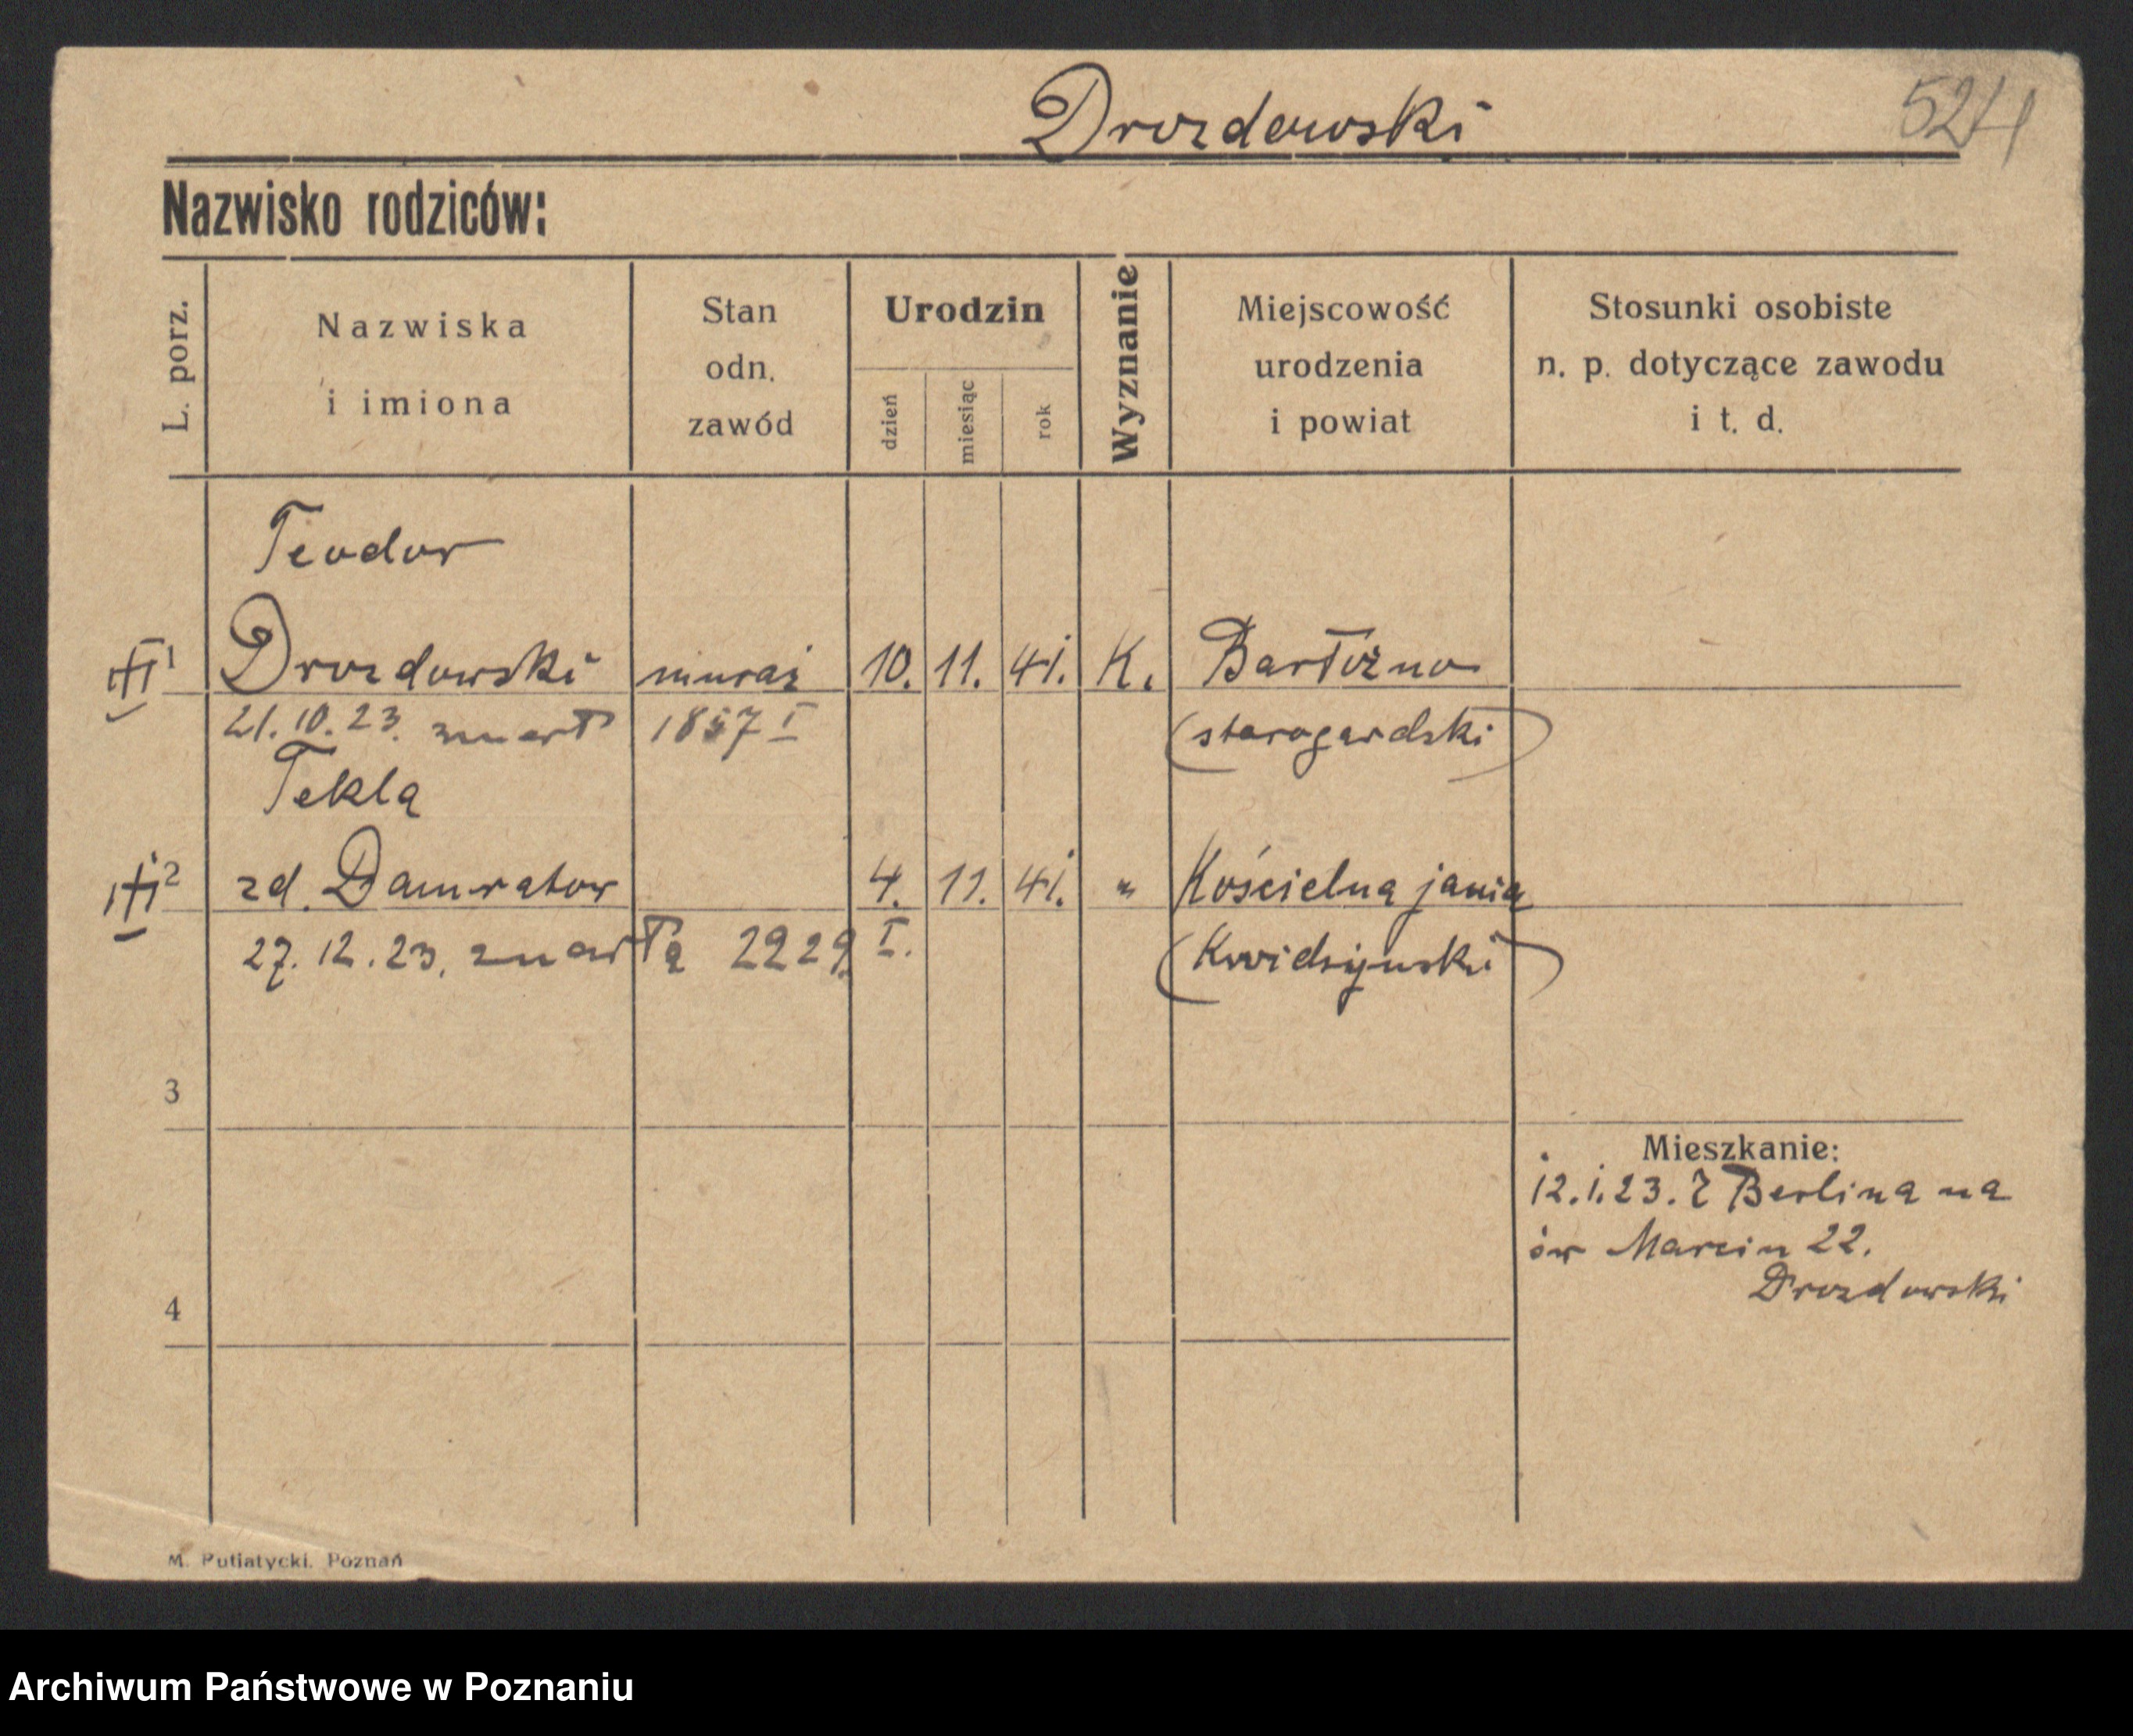 Drozdowski
524
Nazwisko rodziców:
L. porz.
Nazwiska
i imiona
Stan
odn.
zawód
Urodzin
dzień
miesiąc
rok
Wyznanie
Miejscowość
urodzenia
i powiat
Stosunki osobiste
n. p. dotyczące zawodu
i t. d.
Teodor
1 Drozdowski muraż 10. 11. 41. K. Bartóżno
21. 10. 23. zmarł 1857 I (starogardski)
Tekla
2 zd. Damratow 4. 11. 41. " Kościelna jania
27. 12. 23. zmarła 2229 I. (Kwidzynski)
3
Mieszkanie:
12.1.23. Z Berlina na
św Marcin 22.
Drozdowski
4
M. Putiatycki. Poznań
Archiwum Państwowe w Poznaniu